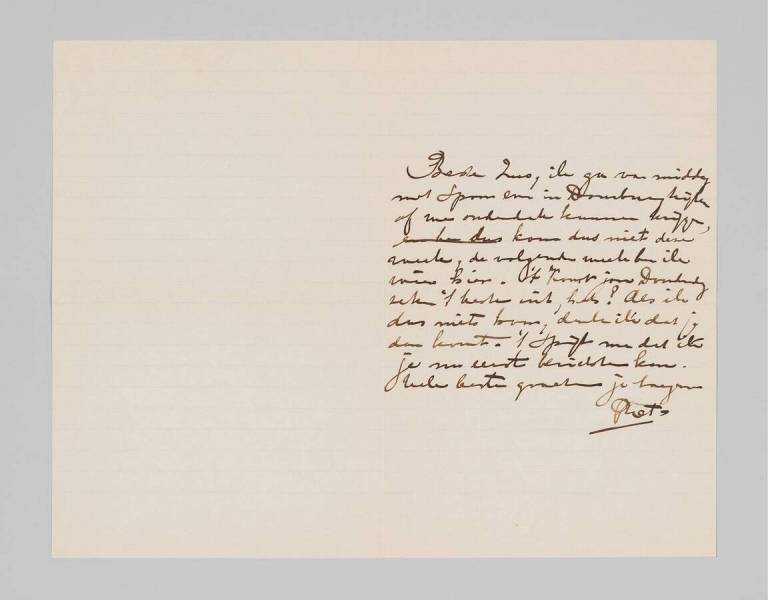 Beste Zus, ik ga van middag
met Spoor even in Domburg kijken
of we onderdak kunnen krijgen,
en ben dus kom dus niet deze
week, de volgende week ben ik
weer hier. 't Komt jou Donderdag
zeker 't beste uit, hè? Als ik
dus niets hoor, denk ik dat je
dan komt. 't Spijt me dat ik
je nu eerst berichten kan.
Vele beste groeten je toegen
Piet